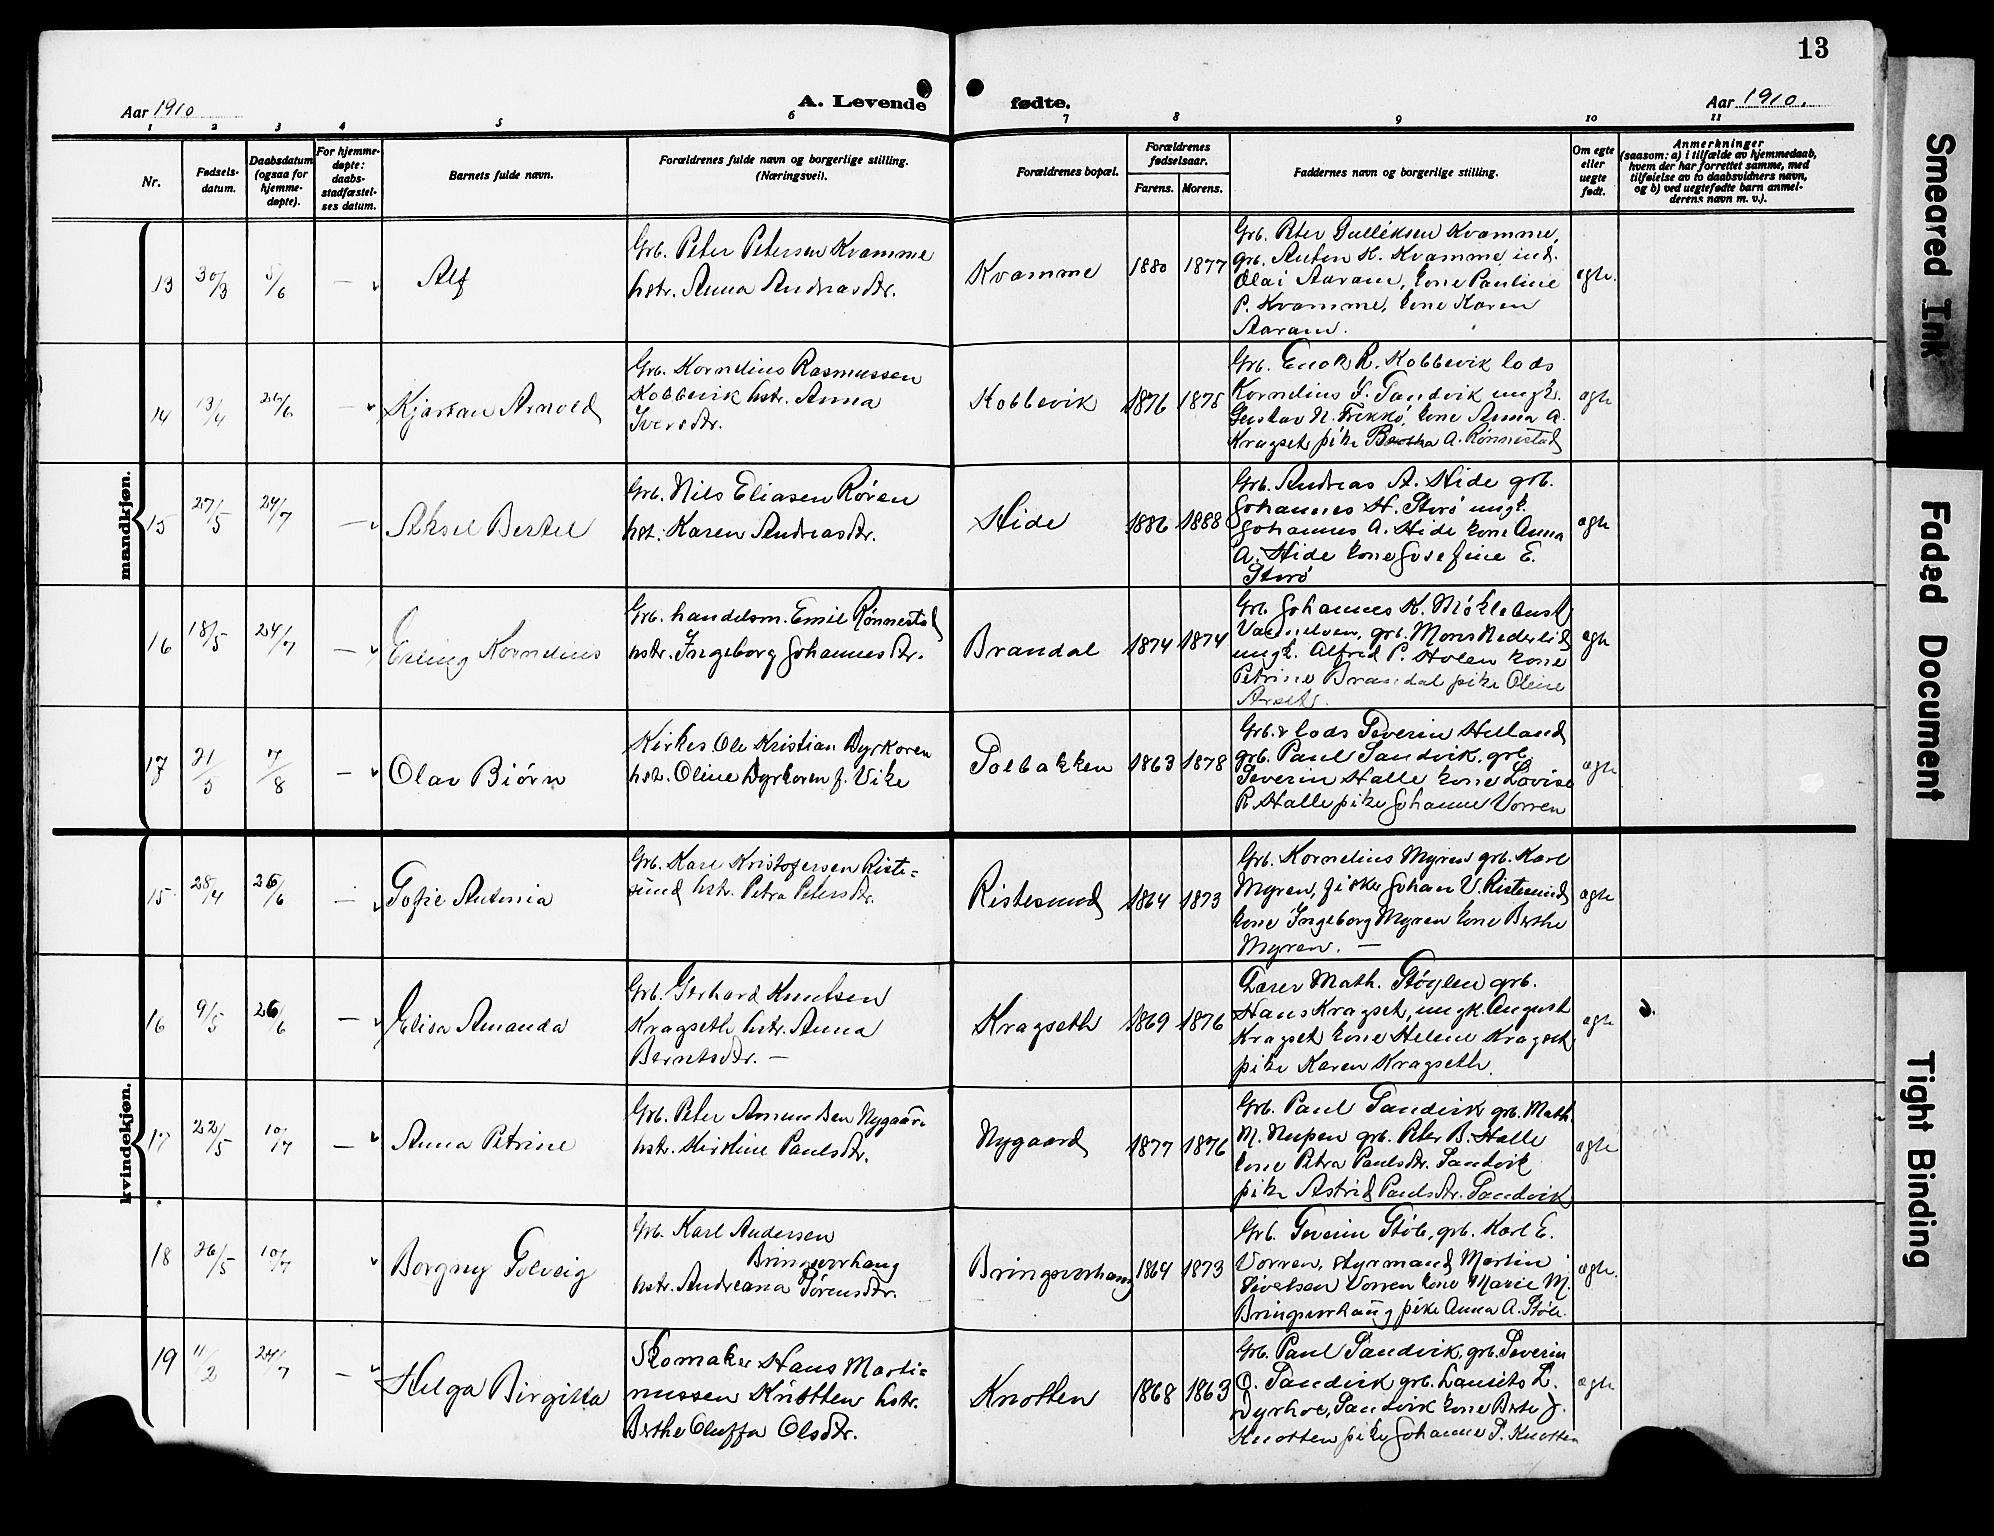 13
Aar 1910
A. Levende fødte.
Aar 1910.
1 2 3 4 5 6 7 8 9 10 11
Nr.
Fødsels-
datum.
Daabsdatum
(ogsaa for
hjemme-
døpte).
For hjemme-
døpte:
daabs-
stadfæstel-
ses datum.
Barnets fulde navn.
Forældrenes fulde navn og borgerlige stilling.
(Næringsvei).
Forældrenes bopæl.
Forældrenes
fødselsaar.
Farens. Morens.
Faddernes navn og borgerlige stilling.
Om egte
eller
uegte
født.
Anmerkninger
(saasom: a) i tilfælde av hjemmedaab,
hvem der har forrettet samme, med
tilføielse av to daabsvidners navn,
og b) ved uegtefødte barn anmel-
derens navn m. v.).
mandkjøn.
13 30/3 5/6 — Alf
Grb. Peter Petersen Kvamme
hstr. Anna Andreasdtr.
Kvamme 1880 1877
Grb. Peter Gulliksen Kvamme,
grb. Anton K. Kvamme, ind.
Olai Aaram, kone Pauline
P. Kvamme, kone Karen
Aaram.
egte.
14 13/4 26/6 — Kjartan Arnold
Grb. Kornelius Rasmussen
Kobbevik hstr. Anna
Iversdtr.
Kobbevik 1876 1875
Grb. Enok R. Kobbevik lods
Kornelius S. Sandvik ungk.
Gustav N. Frekkø, kone Anna A.
Kragset pike Bertha A. Rønnestad
egte
15 27/5 24/7 — Aksel Bertel
Grb. Nils Eliasen Røren
hst. Karen Andreasdtr.
Hide 1886 1888
Grb. Andreas A. Hide grb.
Johannes H. Storø ungk.
Johannes A. Hide kone Anna
A. Hide kone Josefine E.
Storø
egte
16 18/5 24/7 — Erling Kornelius
Grb. handelsm. Emil Rønnestad
hstr. Ingeborg Johannesdtr.
Brandal 1874 1874
Grb. Johannes K. Møklebust
grb. Mons Nederlid
ungk. Alfred P. Holen kone
Petrine Brandal pike Oline
Arset.
egte
17 21/5 7/8 — Olav Biørn
Kirkes. Ole Kristian Dyrkoren
hst. Oline Dyrkoren f. Vike
Solbakken 1863 1878
Grb. & lods Severin Helland
grb. Paul Sandvik, grb.
Severin Halle kone Lovise
R. Halle pike Johanne Vorren
egte
kvindekjøn.
15 28/4 26/6 — Sofie Antonia
Grb. Karl Kristofersen Riste=
sund hstr. Petra Petersdtr.
Ristesund 1864 1873
Grb. Kornelius Myren grb. Karl
Myren, fisker Johan V. Ristesund
kone Ingeborg Myren kone Berthe
Myren. —
egte
16 9/5 26/6 — Elisa Amanda
Grb. Gerhard Knutsen
Kragseth hstr. Anna
Berntsdtr. —
Kragseth 1869 1876
Lærer Math. Støylen grb.
Hans Kragset, ungk. August
Kragset kone Helene Kragset,
pike Karen Kragseth.
egte
17 22/5 10/7 — Anna Petrine
Grb. Peter Amundsen Nygaard
hstr. Kirstine Paulsdtr.
Nygaard 1877 1876
Grb. Paul Sandvik grb. Math.
M. Nupen grb. Peter B. Halle
kone Petra Paulsdtr. Sandvik
pike Astrid Paulsdtr. Sandvik
egte
18 26/5 10/7 Borgny Solveig
Grb. Karl Andersen
Bringsvorhaug
hstr. Andreana Sørensdtr.
Bringsvorhaug 1864 1873
Grb. Severin Støle, grb. Karl E.
Vorren, styrmand Martin
Sivertsen Vorren kone Marie M.
Bringsvorhaug pike Anna A. Støle.
egte.
19 11/2 24/7 — Helga Birgitta
Skomaker Hans Marti=
nussen Knotten hstr.
Berthe Oluffa Olsdtr.
Knotten 1868 1863
Grb. Paul Sandvik, grb. Severin
O. Sandvik grb. Laurits L.
Dyrhol, Sandvik kone Berte J.
Knotten pike Johanne P. Knotten
egte
Smeared Ink
Faded Document
Tight Binding